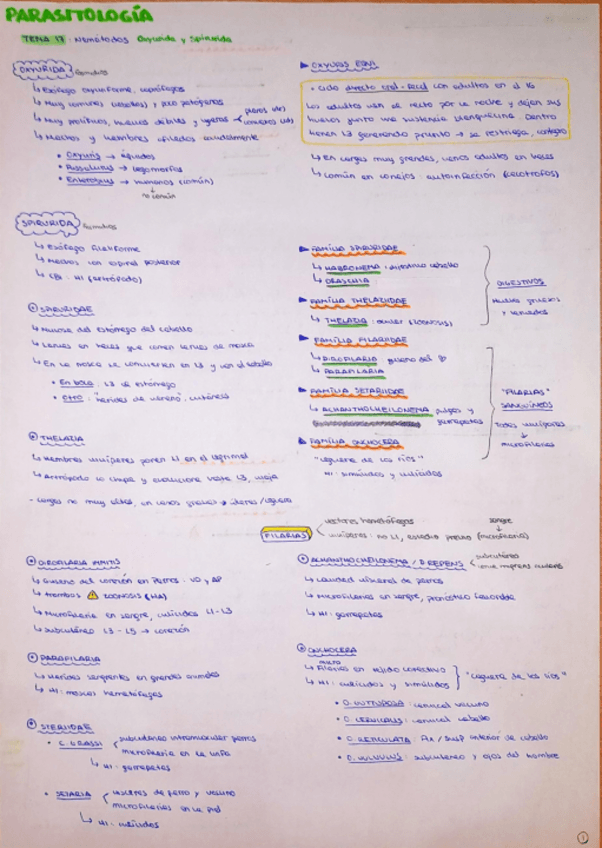 PARASITOLOGÍA
TEMA 17: Nemátodos Oxyurida y Spirurida
OXYURIDA
↳ Esófago oxyuriforme, coprófagos
↳ Muy comunes (caballos) y poco patógenos
↳ Muy prolíficos, huevos débiles y ligeros
↳ Machos y hembras afilados caudalmente
• OXYURIS → équidos
• PASSALURUS → lagomorfos
• ENTEROBIUS → humanos (común)
no común
► OXYURIS EQUI
• Ciclo directo oral-fecal con adultos en el IG
Los adultos van al recto por la noche y dejan sus
huevos junto una sustancia blanquecina. Dentro
tienen L3 generando prurito → se restriega, contagio
↳ En cargas muy grandes, vemos adultos en heces
↳ Común en conejos: autoinfección (cecotrofos)
SPIRURIDA
↳ Esófago filariforme
↳ Machos con espiral posterior
↳ CBI: HI (artrópodo)
► FAMILIA SPIRURIDAE
↳ HABRONEMA: estómago caballo
↳ DRASCHIA
► FAMILIA THELAZIIDAE
↳ THELAZIA: ocular (ZOONOSIS)
DIGESTIVOS
Huevos gruesos
y larvados
► FAMILIA FILARIIDAE
↳ DIROFILARIA: gusano del
↳ PARAFILARIA
► FAMILIA SETARIIDAE
↳ ACHANTHOLHEILONEMA pulgas y
garrapatas
► FAMILIA ONCHOCERA
"ceguera de los ríos"
HI: simúlidos y culícidos
"FILARIAS"
SANGUÍNEOS
Todos vivíparos
↓
microfilarias
SPIRURIDAE
↳ Mucosa del estómago del caballo
↳ Larvas en heces que comen larvas de mosca
↳ En la mosca se convierten en L3 y van al caballo
• En boca: L3 va estómago
• Otro: "heridas de verano": cutánea
THELAZIA
↳ Hembras vivíparas ponen L1 en el lagrimal
↳ Artrópodo lo chupa y evoluciona hasta L3, viaja
- Cargas no muy altas, en casos graves → úlceras/ceguera
FILARIAS
vectores hematófagos
sangre
vivíparos: no L1, estadio previo (microfilaria)
DIROFILARIA IMMITIS
↳ Gusano del corazón en Perros: VD y AP
↳ trombos ⚠ ZOONOSIS (HA)
↳ Microfilaria en sangre, culícidos L1-L3
↳ Subcutáneo L3 - L5 → corazón
ACHANTHOCHEILONEMA / D. REPENS
subcutáneo
↳ Cavidad visceral de perros
↳ Microfilarias en sangre, pronóstico favorable
↳ HI: garrapatas
PARAFILARIA
↳ Heridas sangrantes en grandes animales
↳ HI: moscas hematófagas
ONCHOCERA
micro
↳ Filarias en tejido conectivo
↳ HI: culícidos y simúlidos
"Ceguera de los ríos"
• O. GUTTUROSA: cervical vacuno
• O. CERVICALIS: cervical caballo
• O. RETICULATA: Flx / Susp anterior de caballo
• O. VULVULUS: subcutáneo y ojos del hombre
STERIIDAE
• C. GRASSI
subcutáneo intramuscular perros
microfilaria en la linfa
↳ HI: garrapatas
• SETARIA
vísceras de perro y vacuno
microfilarias en la piel
↳ HI: culícidos
1